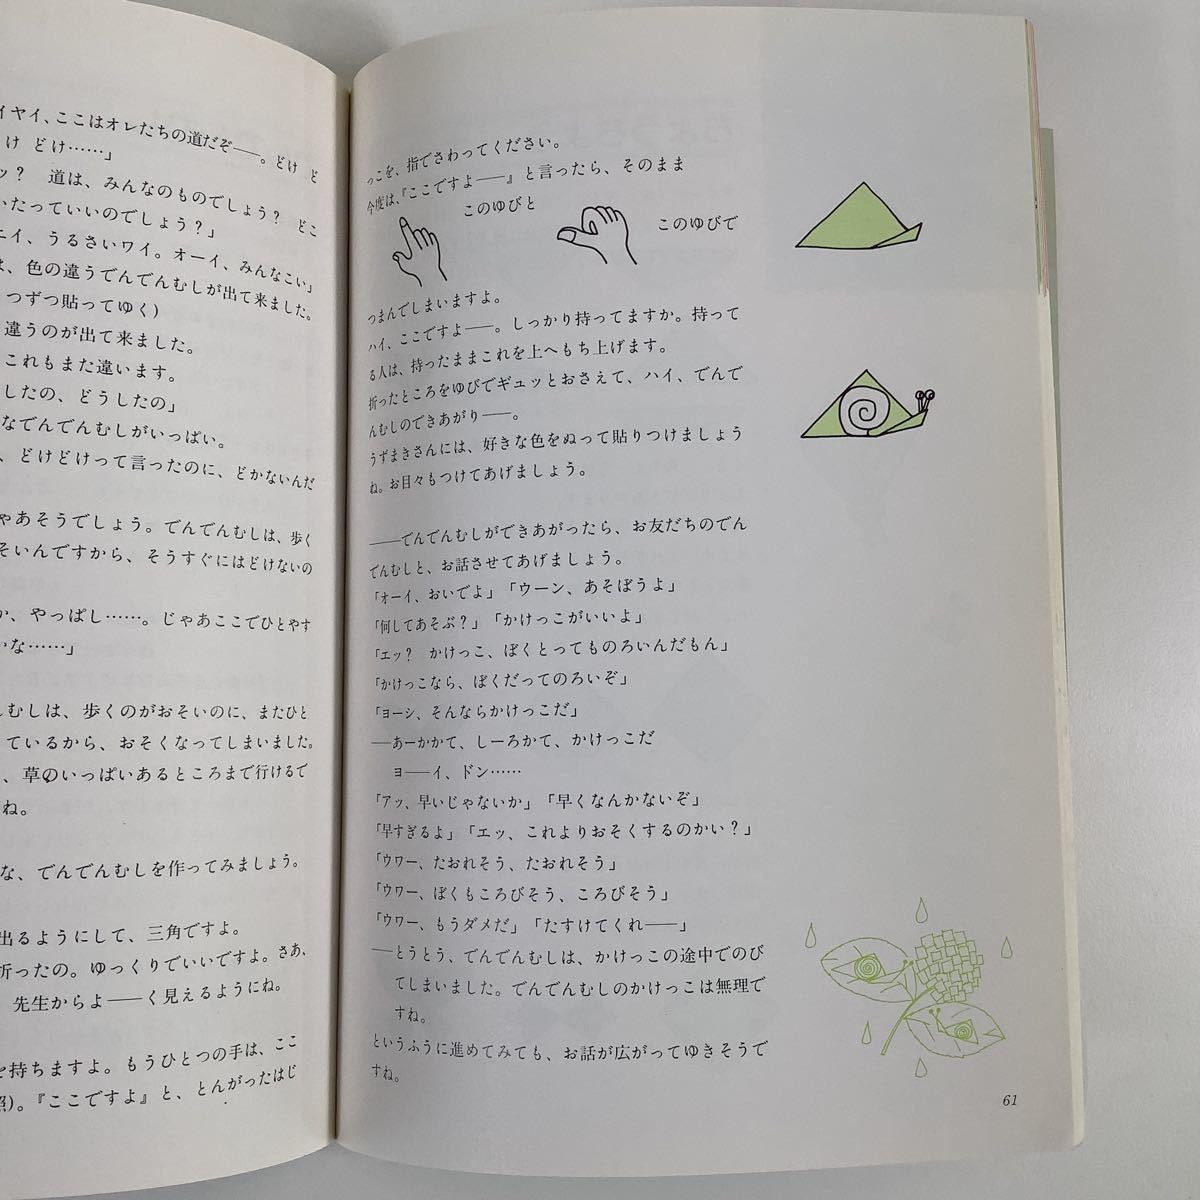 イヤイ、ここはオレたちの道だぞ――。どけ ど
け どけ……」
ッ? 道は、みんなのものでしょう? どこ
いたっていいのでしょう?」
エイ、うるさいワイ。オーイ、みんなこい」
は、色の違うでんでんむしが出て来ました。
つずつ貼ってゆく)
違うのが出て来ました。
これもまた違います。
したの、どうしたの」
なでんでんむしがいっぱい。
、どけどけって言ったのに、どかないんだ
ゃあそうでしょう。でんでんむしは、歩く
そいんですから、そうすぐにはどけないの
か、やっぱし……。じゃあここでひとやす
いな……」
しむしは、歩くのがおそいのに、またひと
ているから、おそくなってしまいました。
、草のいっぱいあるところまで行けるで
ね。
な、でんでんむしを作ってみましょう。
出るようにして、三角ですよ。
折ったの。ゆっくりでいいですよ。さあ、
先生からよ――く見えるようにね。
を持ちますよ。もうひとつの手は、ここ
照)。『ここですよ』と、とんがったはじ
っこを、指でさわってください。
今度は、『ここですよ――』と言ったら、そのまま
このゆびと
このゆびで
つまんでしまいますよ。
ハイ、ここですよ――。しっかり持ってますか。持って
る人は、持ったままこれを上へもち上げます。
折ったところをゆびでギュッとおさえて、ハイ、でんで
んむしのできあがり――。
うずまきさんには、好きな色をぬって貼りつけましょう
ね。お目々もつけてあげましょう。
――でんでんむしができあがったら、お友だちのでん
でんむしと、お話させてあげましょう。
「オーイ、おいでよ」「ウーン、あそぼうよ」
「何してあそぶ?」「かけっこがいいよ」
「エッ? かけっこ、ぼくとってものろいんだもん」
「かけっこなら、ぼくだってのろいぞ」
「ヨーシ、そんならかけっこだ」
――あーかかて、しーろかて、かけっこだ
ヨ――イ、ドン……
「アッ、早いじゃないか」「早くなんかないぞ」
「早すぎるよ」「エッ、これよりおそくするのかい?」
「ウワー、たおれそう、たおれそう」
「ウワー、ぼくもころびそう、ころびそう」
「ウワー、もうダメだ」「たすけてくれ――」
――とうとう、でんでんむしは、かけっこの途中でのび
てしまいました。でんでんむしのかけっこは無理で
すね。
というふうに進めてみても、お話が広がってゆきそうで
すね。
61